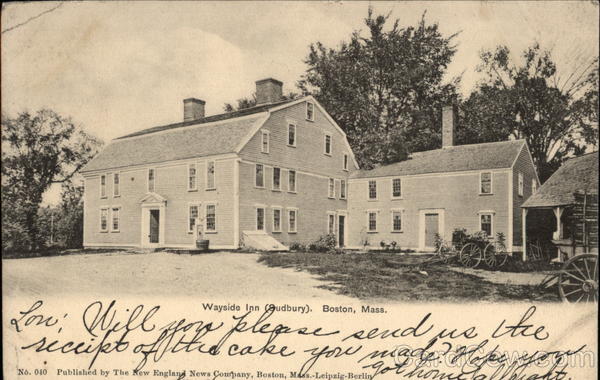 Wayside Inn (Sudbury). Boston, Mass.
Lon; Will you please send us the
receipt of the cake you made? Hope you
got home all right
No. 040 Published by The New England News Company, Boston, Mass.-Leipzig-Berlin
CardCow.com